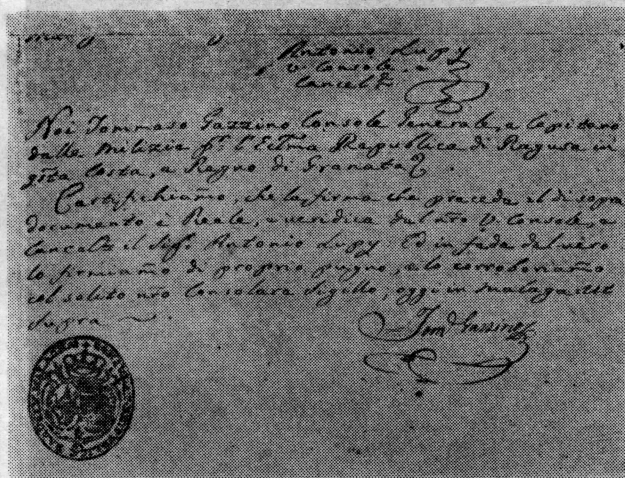 Antonio Lupy
V. Console, e
Cancel.e
Noi Tommaso Gazzino Console Generale, e Capitano
della Milizia p. l'Ecc.ma Republica di Ragusa in
q.sta Costa, e Regno di Granata
Certifichiamo, che la firma che precede al di sopra
documento è Reale, e veridica del nro V. Console, e
Cancele il Sig.r Antonio Lupy: Ed in fede del vero
lo firmiamo di proprio pugno, e lo corroboriamo
col solito nro Consolare Sigillo; oggi in Malaga ut
Supra
Tom.o Gazzino